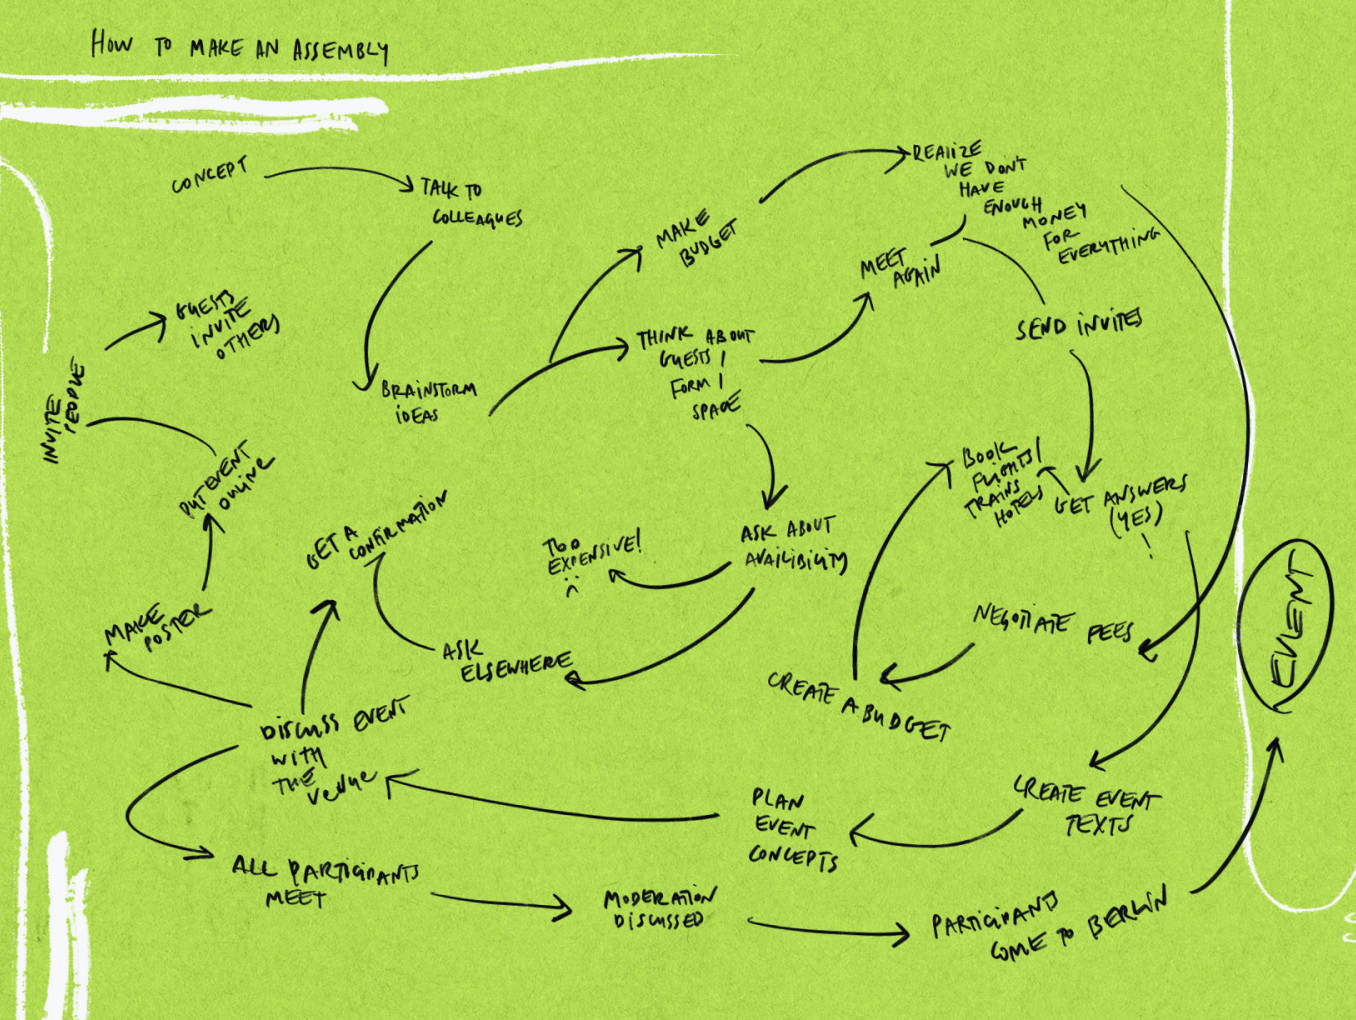 HOW TO MAKE AN ASSEMBLY
CONCEPT
TALK TO
COLLEAGUES
BRAINSTORM
IDEAS
MAKE
BUDGET
REALIZE
WE DON'T
HAVE
ENOUGH
MONEY
FOR
EVERYTHING
THINK ABOUT
GUESTS/
FORM/
SPACE
MEET
AGAIN
SEND INVITES
GET ANSWERS
(YES)
!
BOOK
FLIGHTS/
TRAINS
HOTELS
ASK ABOUT
AVAILIBILITY
TOO
EXPENSIVE!
ASK
ELSEWHERE
GET A
CONFIRMATION
NEGOTIATE FEES
CREATE A BUDGET
CREATE EVENT
TEXTS
PLAN
EVENT
CONCEPTS
DISCUSS EVENT
WITH
THE
VENUE
MAKE
POSTER
PUT EVENT
ONLINE
INVITE
PEOPLE
GUESTS
INVITE
OTHERS
ALL PARTICIPANTS
MEET
MODERATION
DISCUSSED
PARTICIPANTS
COME TO BERLIN
EVENT